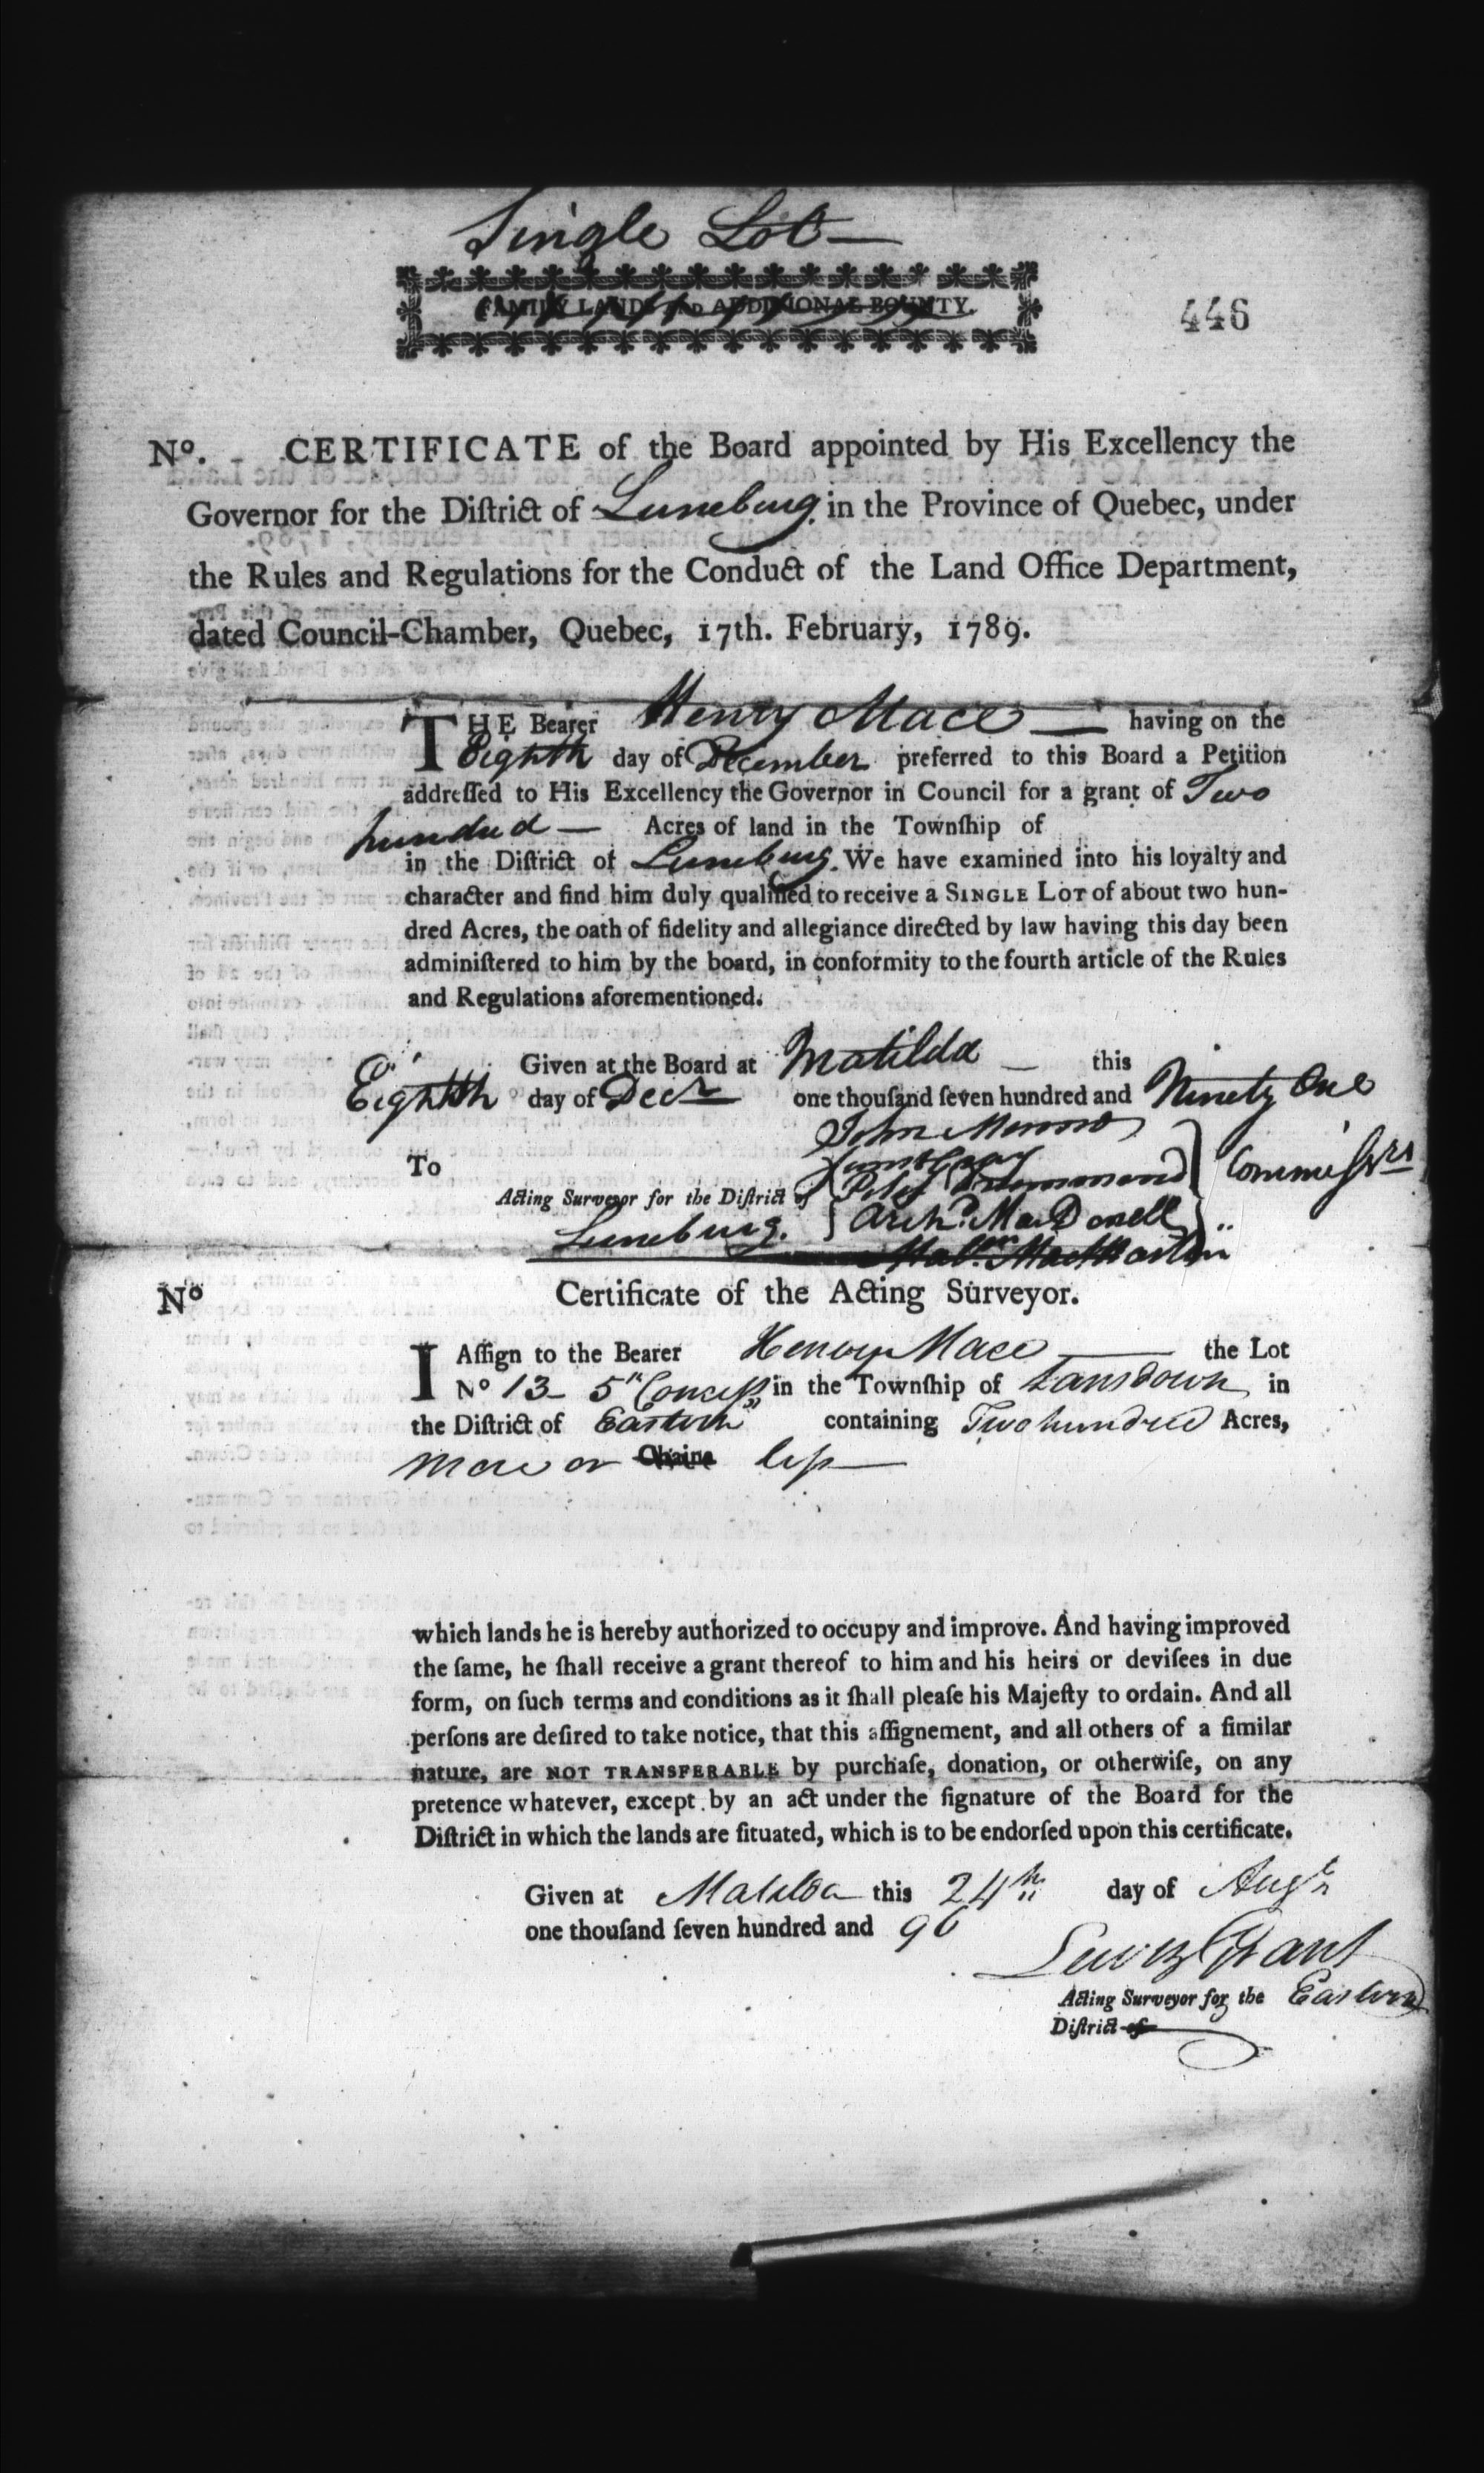 Single Lot
FAMILY LANDS AND ADDITIONAL BOUNTY.
446
Nº. CERTIFICATE of the Board appointed by His Excellency the
Governor for the Diſtrict of Luneburg in the Province of Quebec, under
the Rules and Regulations for the Conduct of the Land Office Department,
dated Council-Chamber, Quebec, 17th. February, 1789.
THE Bearer Henry Mace having on the
Eighth day of December preferred to this Board a Petition
addreſſed to His Excellency the Governor in Council for a grant of Two
hundred Acres of land in the Townſhip of
in the Diſtrict of Luneburg. We have examined into his loyalty and
character and find him duly qualified to receive a SINGLE LOT of about two hun-
dred Acres, the oath of fidelity and allegiance directed by law having this day been
adminiſtered to him by the board, in conformity to the fourth article of the Rules
and Regulations aforementioned.
Given at the Board at Matilda this
Eighth day of Decr one thouſand ſeven hundred and Ninety One
John Munro
To
Peter Drummond Commiſsrs
Acting Surveyor for the Diſtrict of
Luneburg. Archd. MacDonell
Nº Certificate of the Acting Surveyor.
I Aſſign to the Bearer Henry Mace the Lot
Nº 13 5th Conceſs in the Townſhip of Lansdown in
the Diſtrict of Eastern containing Two hundred Acres,
more or Chains leſs
which lands he is hereby authorized to occupy and improve. And having improved
the ſame, he ſhall receive a grant thereof to him and his heirs or deviſees in due
form, on ſuch terms and conditions as it ſhall pleaſe his Majeſty to ordain. And all
perſons are deſired to take notice, that this aſſignement, and all others of a ſimilar
nature, are NOT TRANSFERABLE by purchaſe, donation, or otherwiſe, on any
pretence whatever, except by an act under the ſignature of the Board for the
Diſtrict in which the lands are ſituated, which is to be endorſed upon this certificate.
Given at Matilda this 24th day of Augt
one thouſand ſeven hundred and 96
Lewis Grant
Acting Surveyor for the Eastern
Diſtrict of